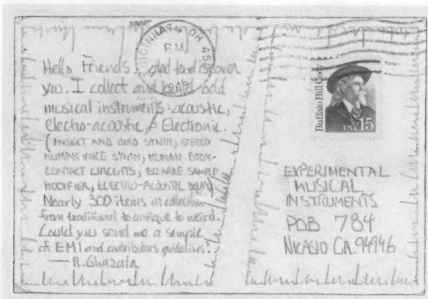 CINCINNATI OH
PM
Hello Friends, glad to discover
you. I collect and build odd
musical instruments - acoustic,
electro-acoustic, & Electronic.
(INSECT AND BIRD SYNTH, STEREO
HUMAN VOICE SYNTH, HUMAN BODY-
CONTACT CIRCUITS, BIZARRE SAMPLE
MODIFIER, ELECTRO-ACOUSTIC
Nearly 300 items in collection
from traditional to antique to weird.
Could you send me a sample
of EMI and contributors guidelines?
— R. Ghazala
Buffalo Bill Cody
USA 15
EXPERIMENTAL
MUSICAL
INSTRUMENTS
POB 784
NICASIO CA. 94946